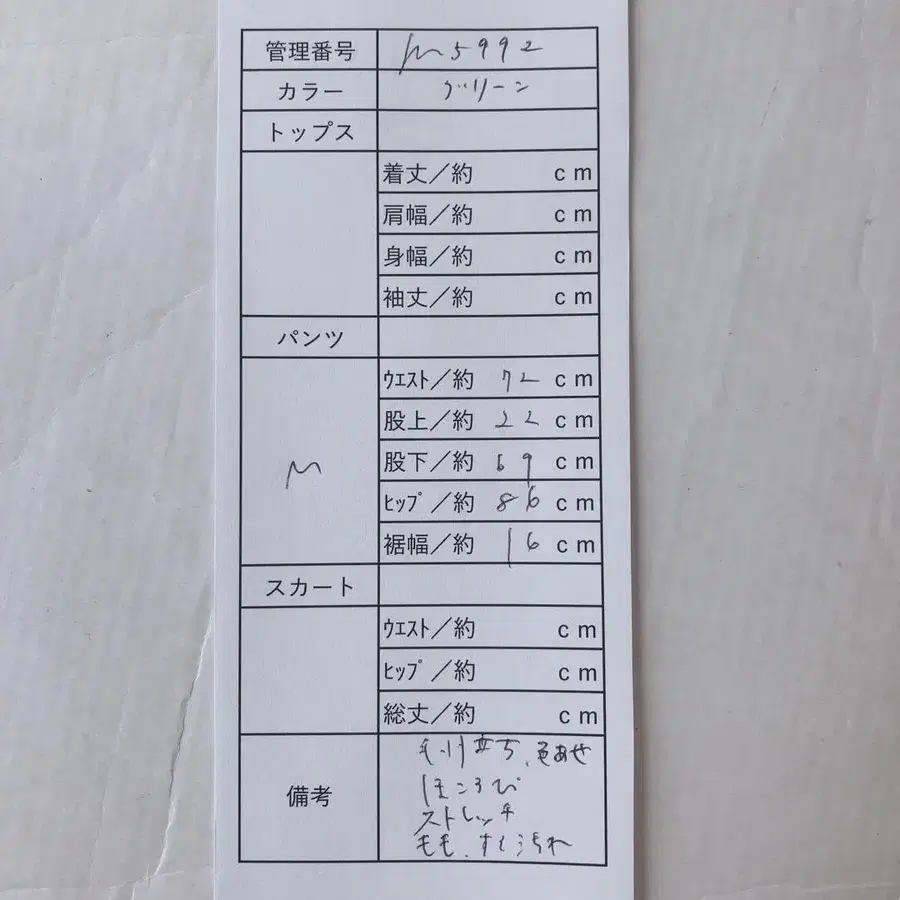 管理番号 m5992
カラー グリーン
トップス
着丈／約 cm
肩幅／約 cm
身幅／約 cm
袖丈／約 cm
パンツ
M
ｳｴｽﾄ／約 72 cm
股上／約 22 cm
股下／約 69 cm
ﾋｯﾌﾟ／約 86 cm
裾幅／約 16 cm
スカート
ｳｴｽﾄ／約 cm
ﾋｯﾌﾟ／約 cm
総丈／約 cm
備考
毛羽立ち、色あせ
ほころび
ストレッチ
もも、すそ汚れ